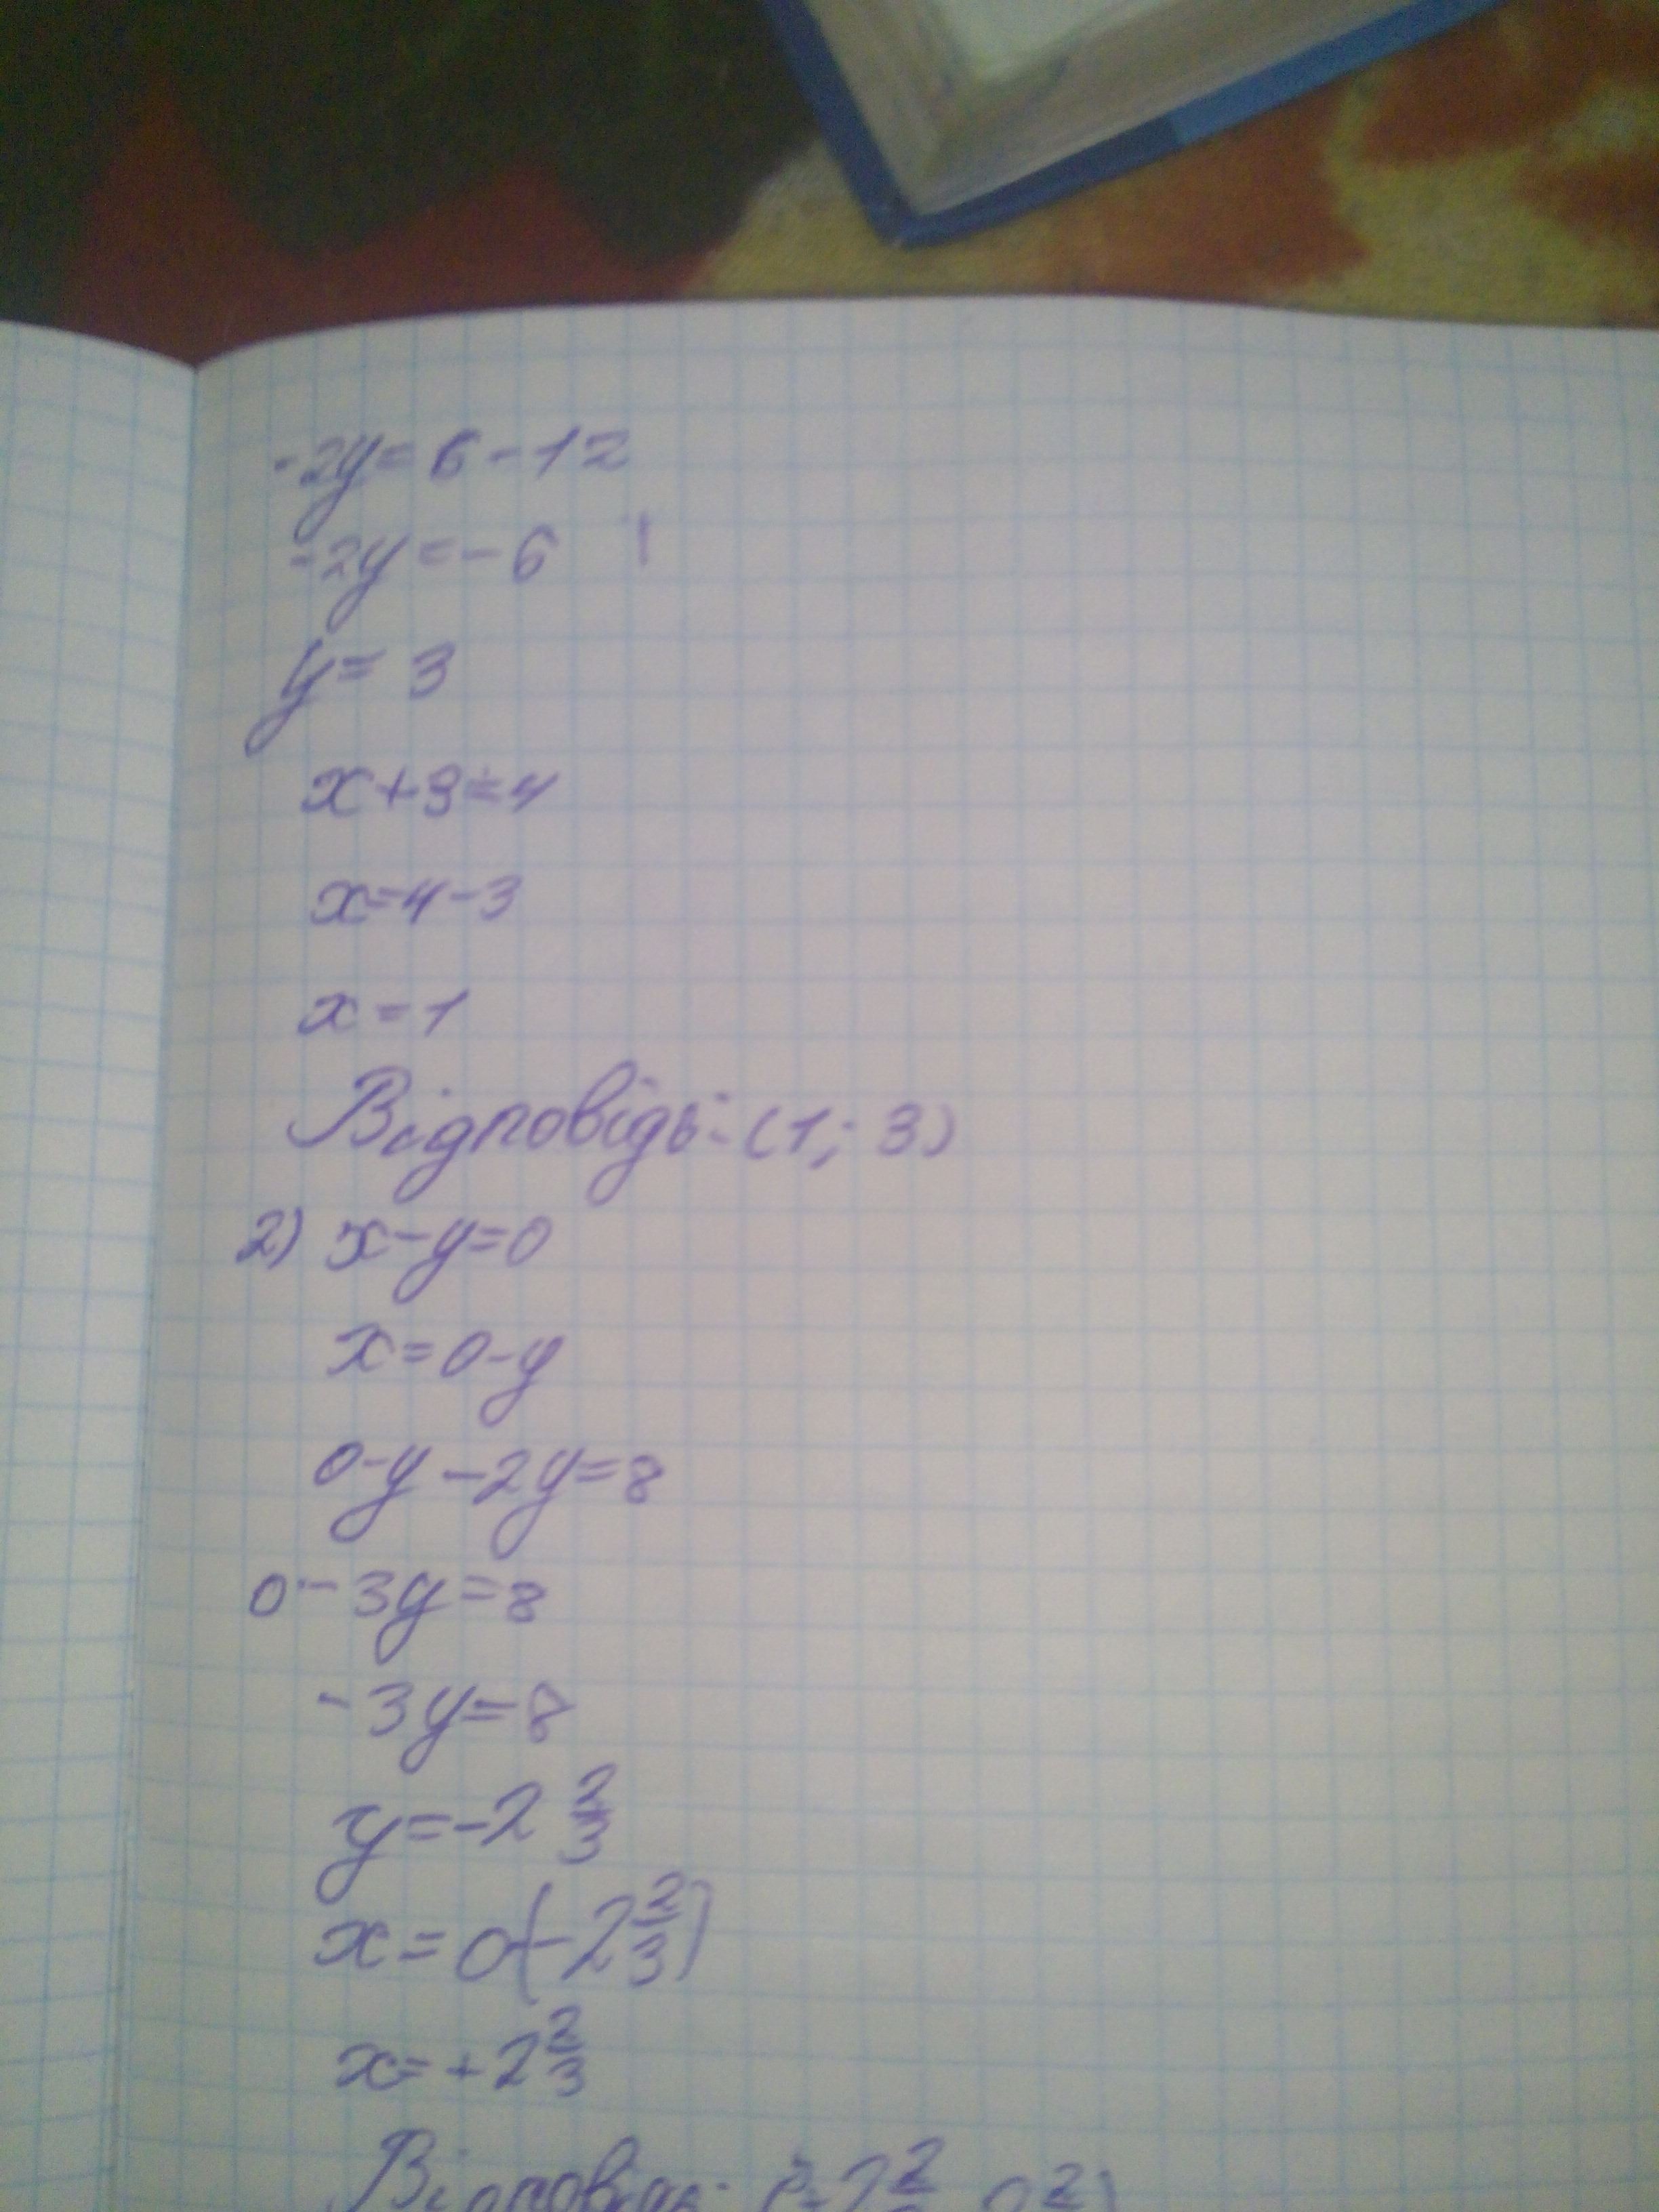 -2y = 6 - 12
-2y = -6
y = 3
x + 3 = 4
x = 4 - 3
x = 1
Відповідь: (1; 3)
2) x - y = 0
x = 0 - y
0 - y - 2y = 8
0 - 3y = 8
-3y = 8
y = -2 2/3
x = 0(-2 2/3)
x = +2 2/3
Відповідь: